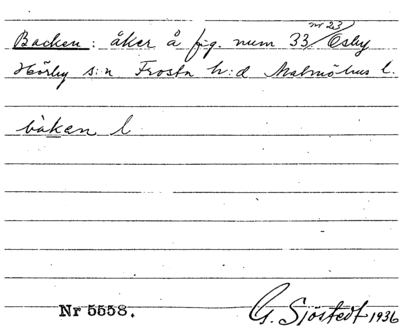 nr 23
Backen: åker å fig. num 33 Osby
Hörby s:n Frosta h:d Malmöhus l.
bàkan l
Nr 5558. G. Sjöstedt 1936